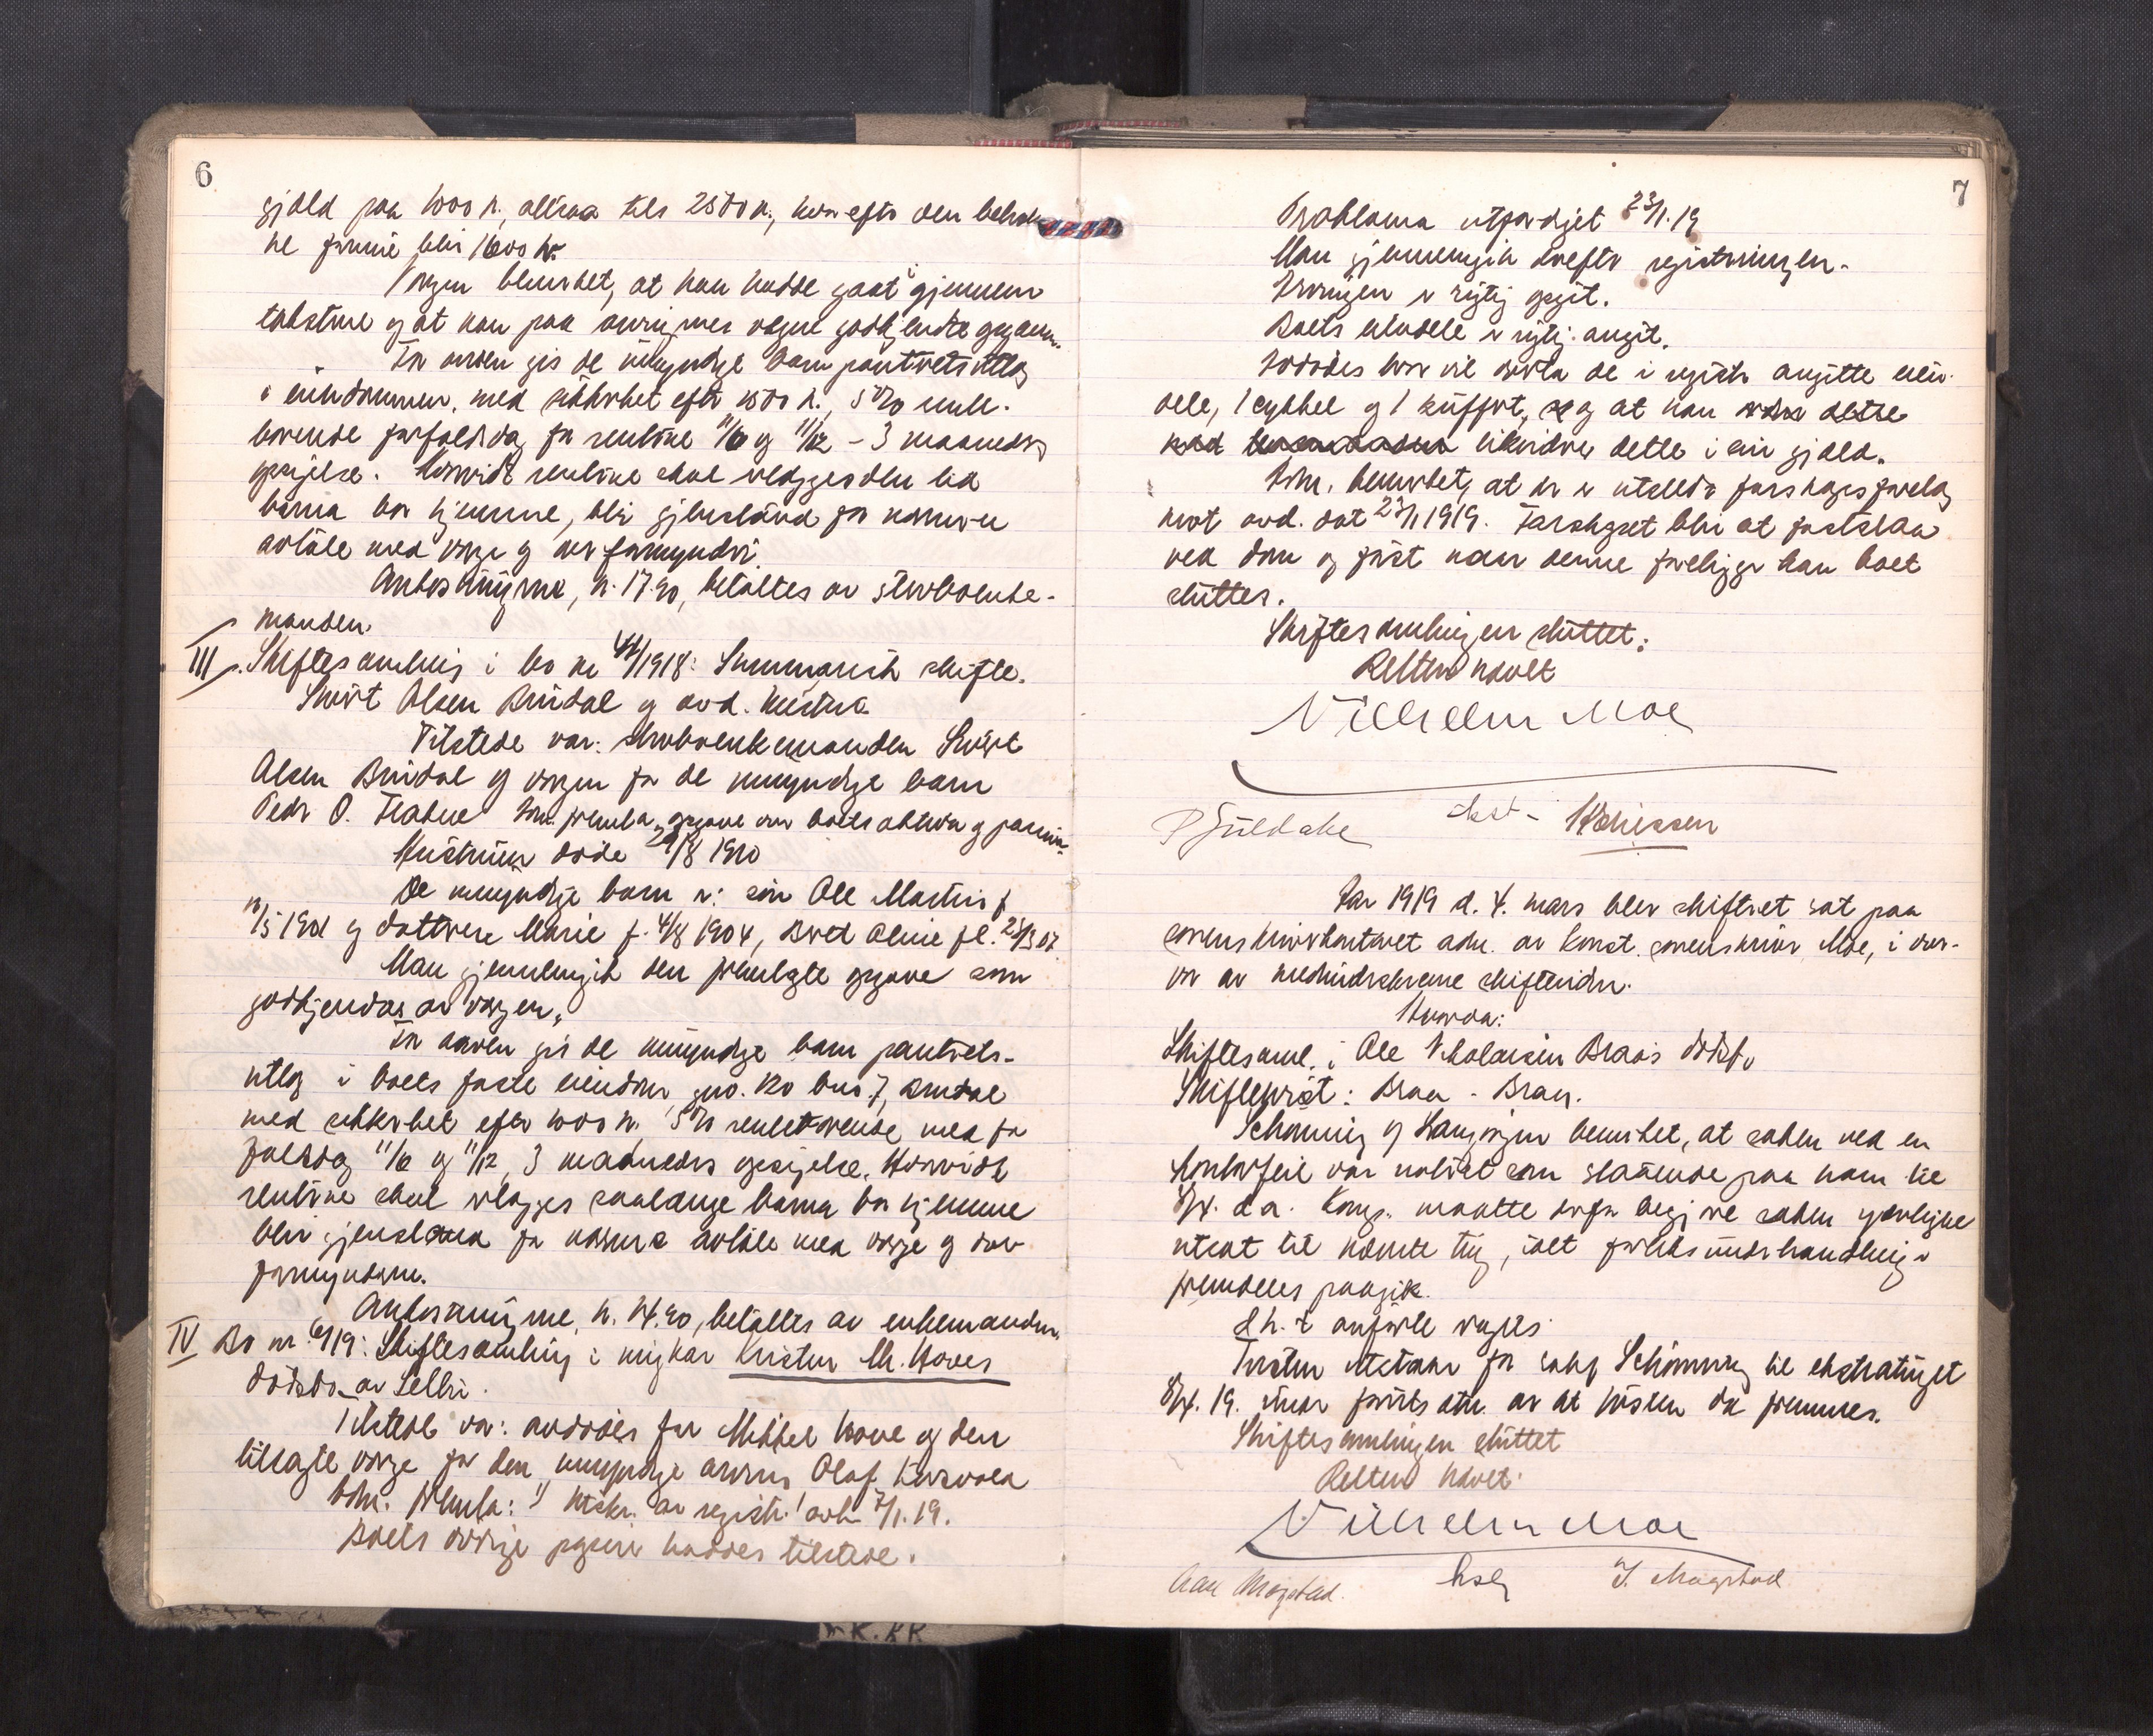 6
gjæld paa 1000 kr., altsaa tils 2500 kr., hvorefter den behold-
ne formue blir 1600 kr.
Vergen bemerket, at han hadde gaat gjennem
takstene og at han paa arvingenes vegne godkjendte opgaven.
For arven gis de umyndige barn pantretsutlæg
i eiendommen, med sikkerhet efter 1500 kr., 5% rente-
bærende forfaldsdag for rentene 11/6 og 11/12 - 3 maaneders
opsigelse. Hvorvidt rentene skal erlægges den tid
barna bor hjemme, blir gjenstand for nærmere
avtale med verge og overformynderi.
Omkostningerne, kr. 17.90, betaltes av sterboenke-
manden.
III. Skiftesamling i bo nr 42/1918: Summarisk skifte.
Sivert Olsen Brudal og avd. hustru
Tilstede var: sterboenkemanden Sivert
Olsen Brudal og vergen for de umyndige barn
Peder O. Fladne Adm. fremla opgave over boets aktiva og passiva.
Hustruen døde 29/8 1910
De umyndige barn er: søn Ole Martin f
/5 1901 og døttrene Marie f. 4/8 1904, Berit Oline f. 23/3 07.
Man gjennemgik den fremlagte opgave som
godkjendes av vergen.
For arven gis de umyndige barn pantrets-
utlæg i boets faste eiendom gno. 120 bno. 7, Brudal
med sikkerhet efter 1000 kr. 5% rentebærende med for-
faldsdag 11/6 og 11/12, 3 maaneders opsigelse. Hvorvidt
rentene skal erlægges saalænge barna bor hjemme
blir gjenstand for nærmere avtale med verge og over-
formynderi.
Omkostningerne, kr. 14.90, betaltes av enkemanden.
IV Bo nr 6/19: Skiftesamling i ungkar Kristen M. Hoves
dødsbo av Selbu.
Tilstede var: avdødes far Mikkel Hove og den
tilsagte verge for den umyndige arving Olaf
Adm. fremla: 1) Utskr. av registr. avh 7/1. 19.
Boets øvrige papirer haddes tilstede.
7
Proklama utfærdiget 23/1. 19
Man gjennemgik derefter registreringen.
Arvingen er rigtig opgit.
Boets eiendele er rigtig angit.
Avdødes bror vil overta de i registr. angitte eien-
dele, 1 cykkel og 1 kuffert, og at han
likviderer dette i sin gjæld.
Adm. bemerket, at der er utstedt farskapsforelæg
mot avd. dat 23/1 1919. Farskapet blir at fastslaa
ved dom og først naar denne foreligger kan boet
sluttes.
Skiftesamlingen sluttet.
Retten hævet
Vilhelm Moe
Aar 1919 d. 4. mars blev skifteret sat paa
sorenskriverkontoret adm. av konst. sorenskriver Moe, i over-
vær av medunderskrevne skiftevidner.
Hvorda:
Skiftesaml. i Ole Nikolaisen Braa's dødsbo
Skifteprot: Braa - Braa.
Schønning og Langjorgen bemerket, at saken ved en
kontorfeil var notert som staaende paa ham til
d. a. maatte derfor begjære saken yderligere
utsat til næmte ting, idet forliksunderhandlinger
fremdeles paagik.
d. h. t anførte vages
Fristen utstaar for sakf. Schønning til ekstratinget
19. under forutsætn. av at høsten da fremmes.
Skiftesamlingen sluttet
Retten hævet.
Vilhelm Moe
J. Mogstad